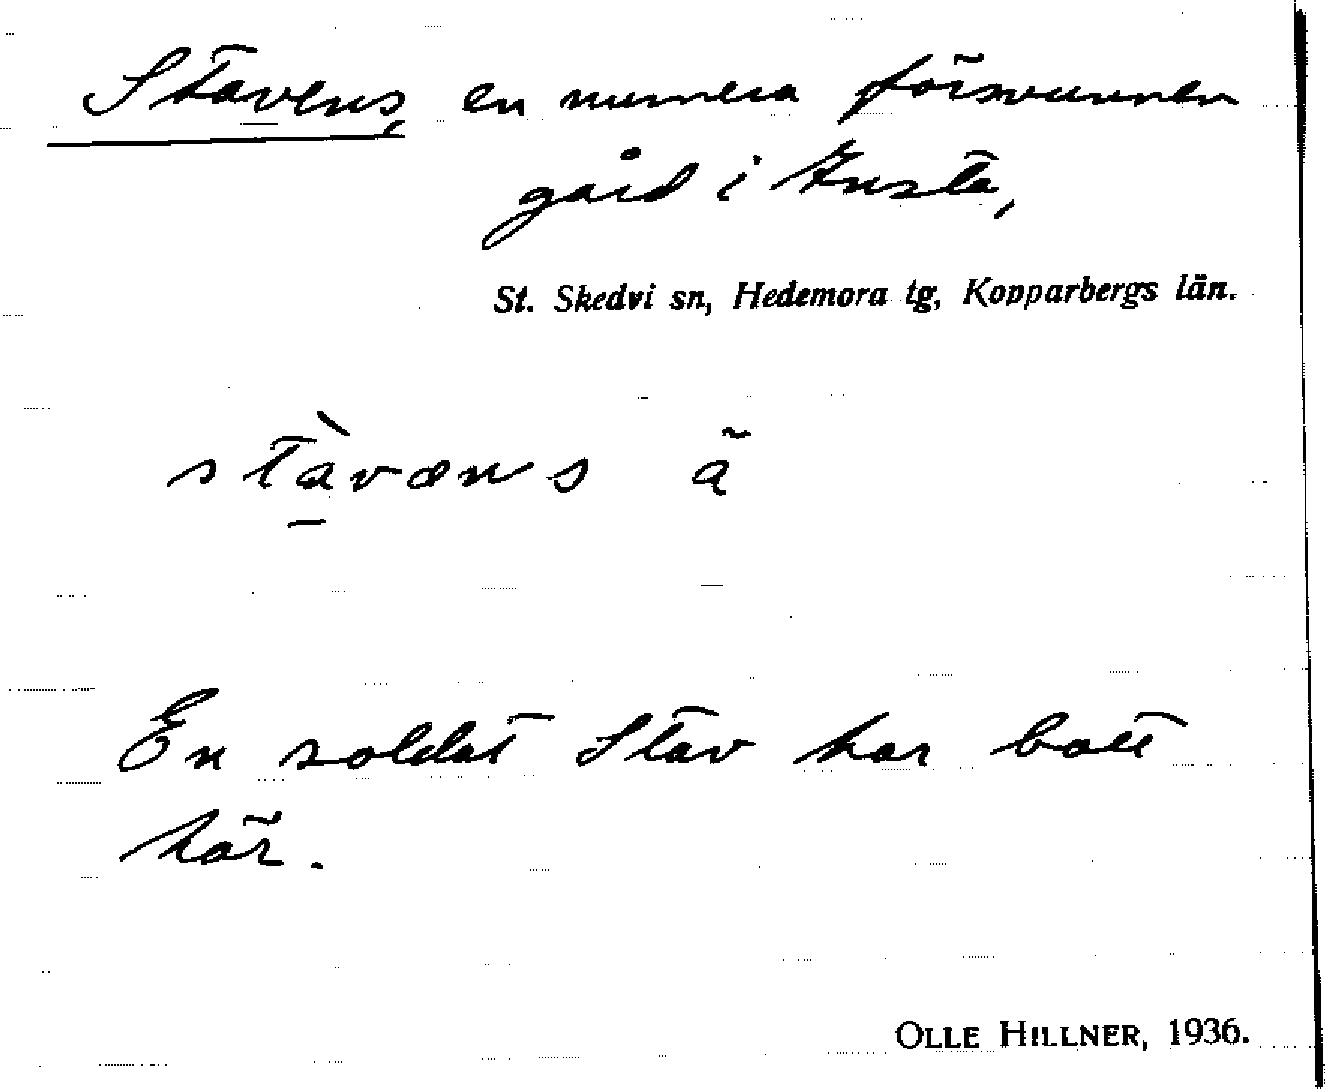 Stavens, en numera försvunnen
gård i Knsta,
St. Skedvi sn, Hedemora tg, Kopparbergs län.
stàvəns ä
En soldat Stav har bott
här.
OLLE HILLNER, 1936.